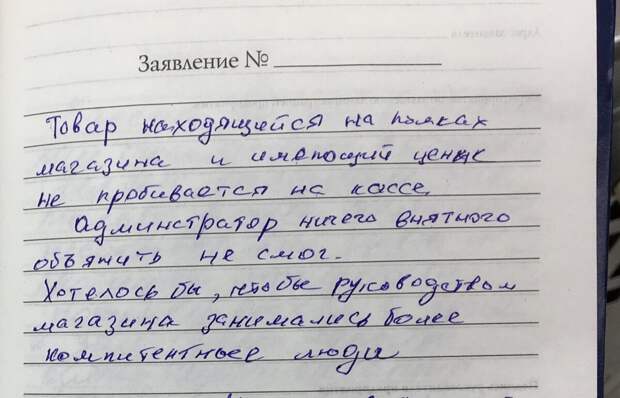 Заявление №
Товар находящейся на полках
магазина и имеющий ценник
не пробивается на кассе.
админстратор ничего внятного
объянить не смог.
Хотелось бы, чтобы руководством
магазина занимались более
компитентные люди